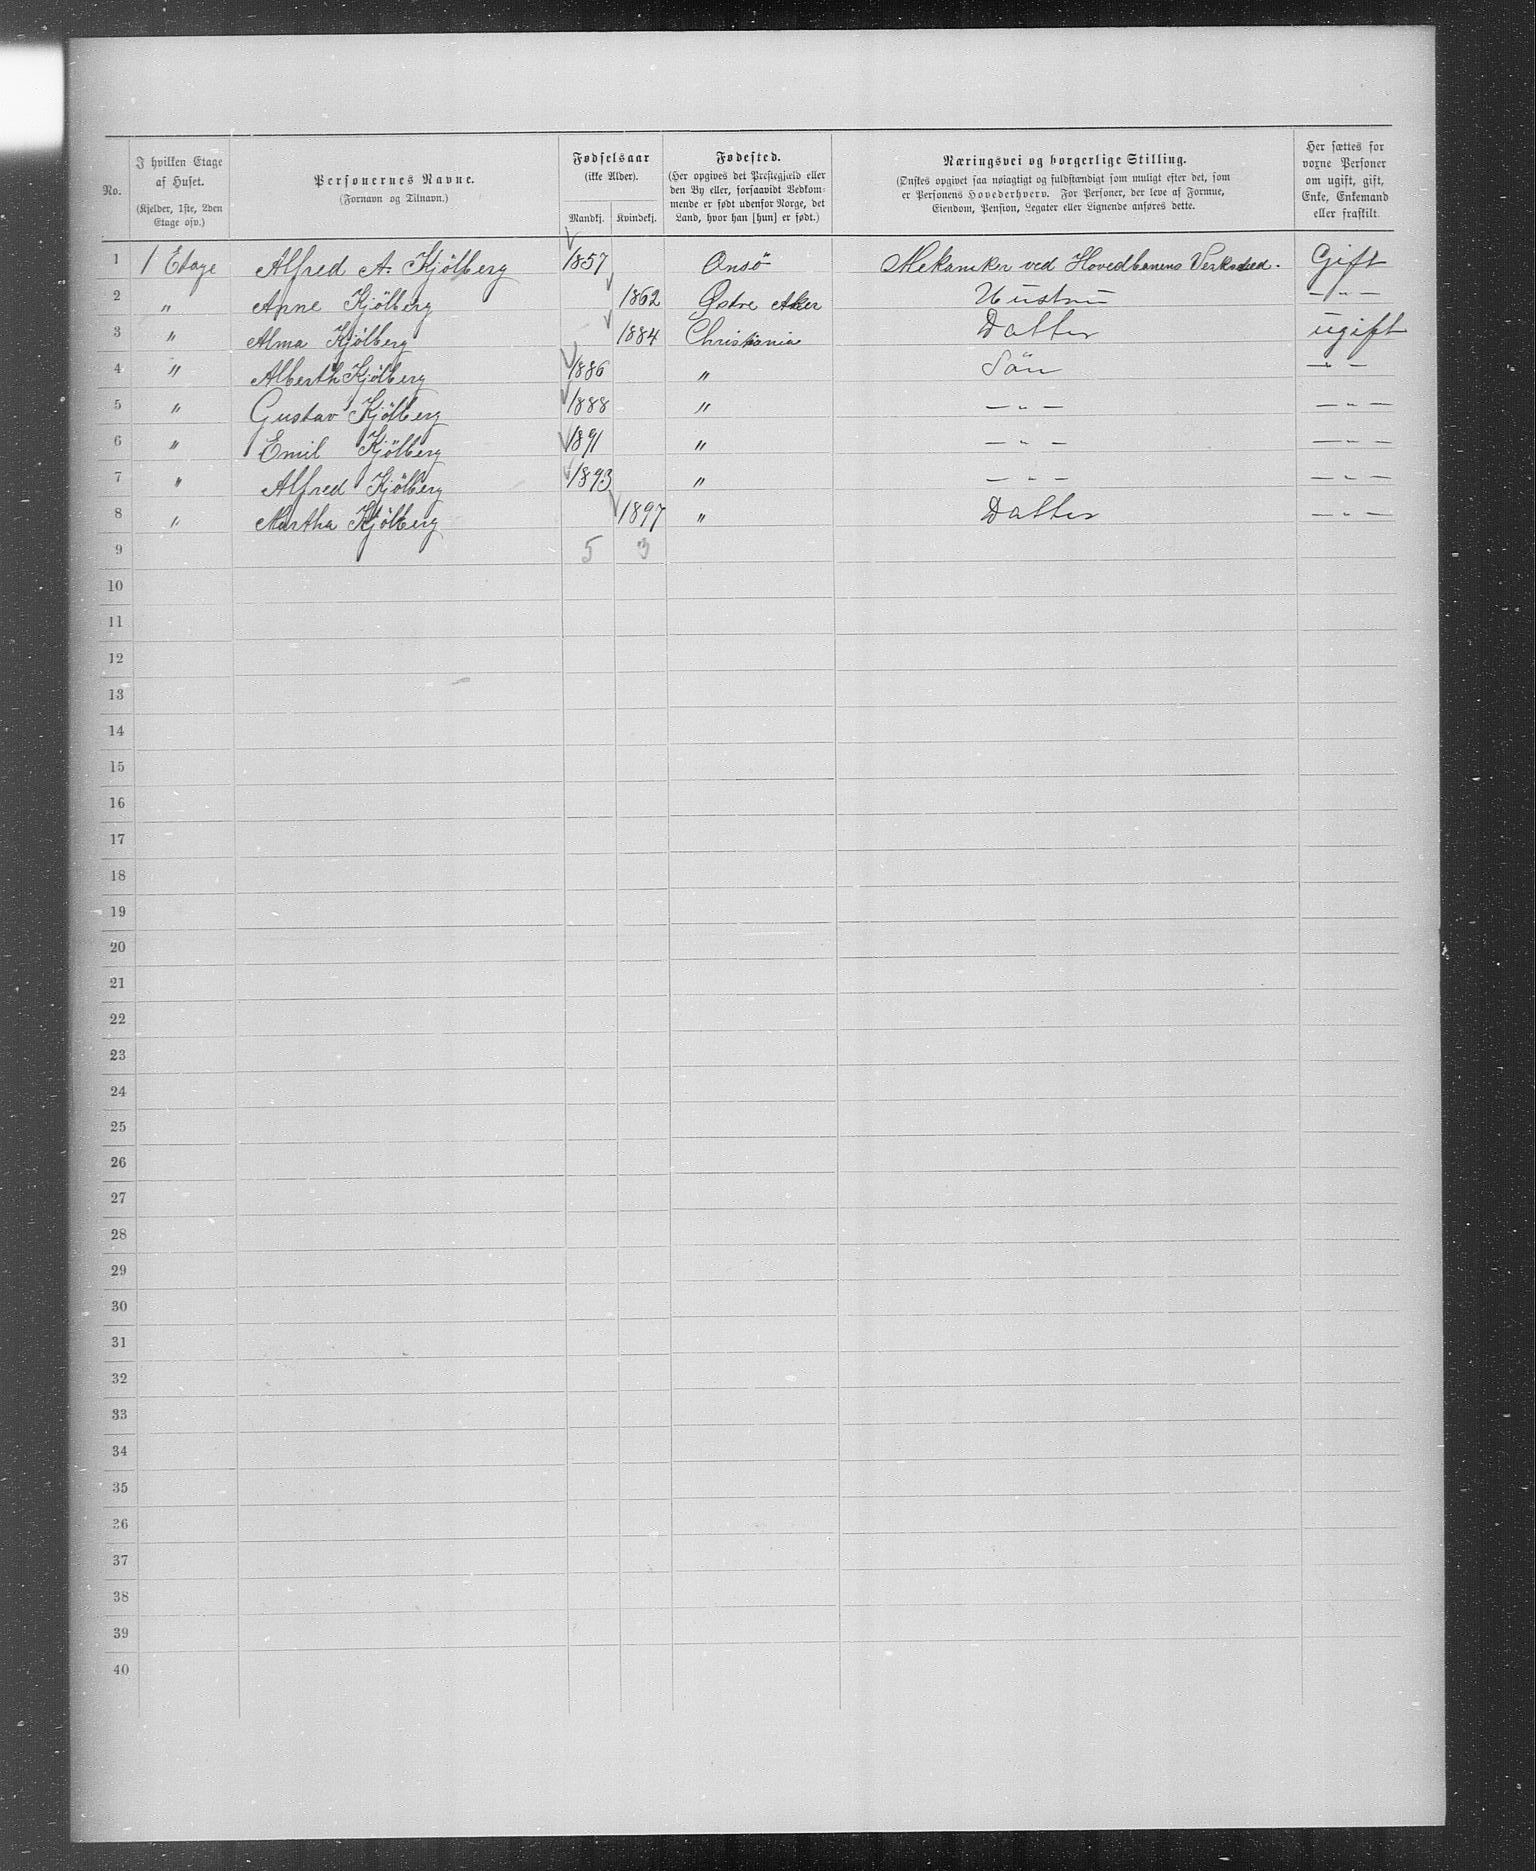 No. | I hvilken Etage af Huset. (Kjelder, 1ste, 2den Etage osv.) | Personernes Navne. (Fornavn og Tilnavn.) | Fødselsaar (ikke Alder). Mandkj. | Kvindekj. | Fødested. (Her opgives det Prestegjæld eller den By eller, forsaavidt Vedkommende er født udenfor Norge, det Land, hvor han [hun] er født.) | Næringsvei og borgerlige Stilling. (Ønskes opgivet saa nøiagtigt og fuldstændigt som muligt efter det, som er Personens Hovederhverv. For Personer, der leve af Formue, Eiendom, Pension, Legater eller Lignende anføres dette. | Her sættes for voxne Personer om ugift, gift, Enke, Enkemand eller fraskilt.
1 | 1 Etage | Alfred A. Kjölberg | 1857 | | Onsö | Mekaniker ved Hovedbanens Verksted. | Gift
2 | " | Anne Kjölberg | | 1862 | Østre Aker | Hustru | — " —
3 | " | Alma Kjölberg | | 1884 | Christiania | Datter | ugift
4 | " | Alberth Kjölberg | 1886 | | " | Sön | — " —
5 | " | Gustav Kjölberg | 1888 | | " | — " — | — " —
6 | " | Emil Kjölberg | 1891 | | " | — " — | — " —
7 | " | Alfred Kjölberg | 1893 | | " | — " — | — " —
8 | " | Martha Kjölberg | | 1897 | " | Datter | — " —
9 | | | 5 | 3
10
11
12
13
14
15
16
17
18
19
20
21
22
23
24
25
26
27
28
29
30
31
32
33
34
35
36
37
38
39
40